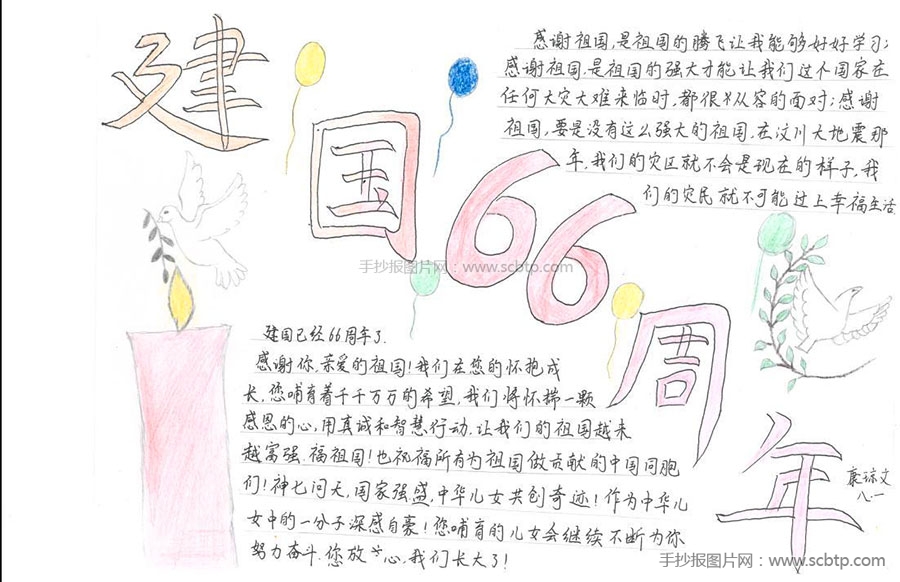 建国66周年
感谢祖国,是祖国的腾飞让我能够好好学习;
感谢祖国,是祖国的强大才能让我们这个国家在
任何大灾大难来临时,都很从容的面对;感谢
祖国,要是没有这么强大的祖国,在汶川大地震那
年,我们的灾区就不会是现在的样子,我
们的灾民就不可能过上幸福生活
手抄报图片网:www.scbtp.com
建国已经66周年了.
感谢你,亲爱的祖国!我们在您的怀抱成
长,您哺育着千千万万的希望,我们将怀揣一颗
感恩的心,用真诚和智慧行动.让我们的祖国越来
越富强.福祖国!也祝福所有为祖国做贡献的中国同胞
们!神七问天,国家强盛,中华儿女共创奇迹!作为中华儿
女中的一分子深感自豪!您哺育的儿女会继续不断为你
努力奋斗.您放心,我们长大了!
八一
手抄报图片网:www.scbtp.com